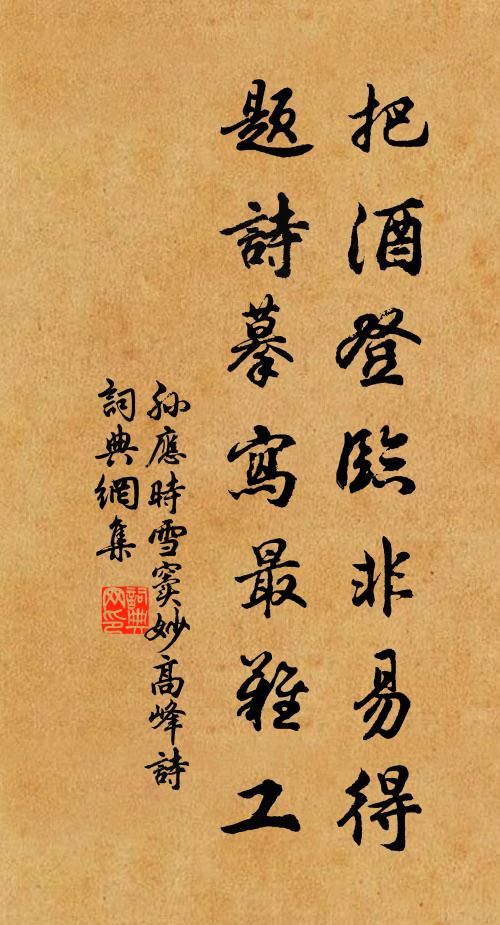 把酒登臨非易得
題詩摹寫最難工
孫應時雪竇妙高峰詩
詞典網集
詞典
网印